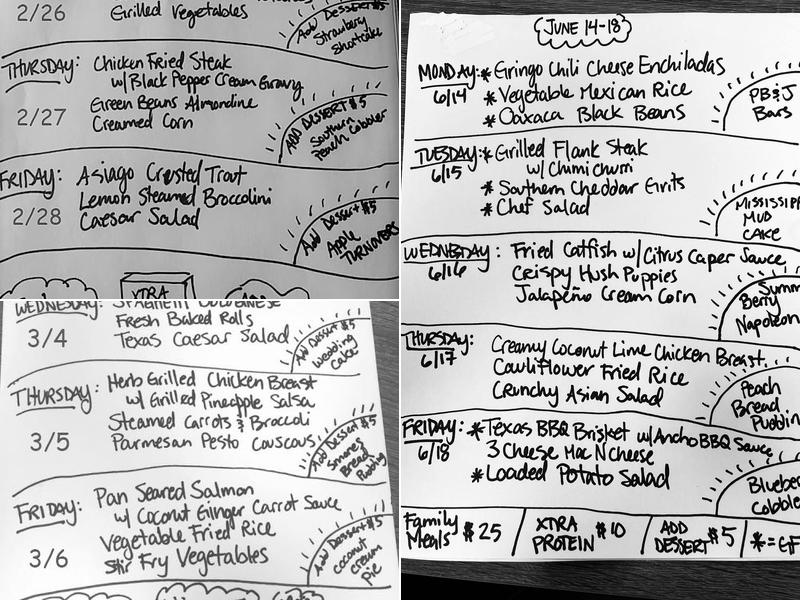 2/26
Grilled Vegetables
Add Dessert $5
Strawberry
Shortcake
THURSDAY: Chicken Fried Steak
w/Black Pepper Cream Gravy
2/27
Green Beans Almondine
Creamed Corn
ADD DESSERT $5
Southern
Peach Cobbler
FRIDAY: Asiago Crusted Trout
2/28
Lemon Steamed Broccolini
Caesar Salad
Add Dessert $5
Apple
TURNOVERS
XTRA
WEDNESDAY: SPAGHETTI BOLOGNESE
3/4
Fresh Baked Rolls
Texas Caesar Salad
Add Dessert $5
Wedding
Cake
THURSDAY: Herb Grilled Chicken Breast
w/ Grilled Pineapple Salsa
3/5
Steamed Carrots & Broccoli
Parmesan Pesto Couscous
Add Dessert $5
Smores
Bread
Pudding
FRIDAY: Pan Seared Salmon
w/ Coconut Ginger Carrot Sauce
3/6
Vegetable Fried Rice
Stir Fry Vegetables
Add Dessert $5
coconut
cream
pie
JUNE 14-18
MONDAY: * Gringo Chili Cheese Enchiladas
6/14
* Vegetable Mexican Rice
* Oaxaca Black Beans
PB&J
Bars
TUESDAY: * Grilled Flank Steak
6/15
w/ Chimichurri
* Southern Cheddar Grits
* Chef Salad
MISSISSIPP
MUD
CAKE
WEDNESDAY: Fried Catfish w/ Citrus Caper Sauce
6/16
Crispy Hush Puppies
Jalapeño Cream Corn
Summ
Berry
Napoleon
THURSDAY:
6/17
Creamy Coconut Lime Chicken Breast
Cauliflower Fried Rice
Crunchy Asian Salad
Peach
Bread
Puddin
FRIDAY: * Texas BBQ Brisket w/Ancho BBQ Sauce
6/18
3 Cheese Mac N Cheese
* Loaded Potato Salad
Blueber
Cobble
Family Meals $25
XTRA PROTEIN $10
ADD DESSERT $5
* = GF